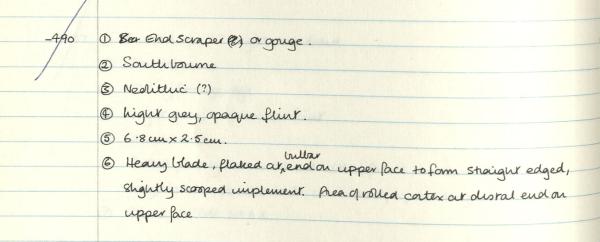 -490 ① End Scraper (?) or gouge.
② Southbourne
③ Neolithic (?)
④ Light grey, opaque flint.
⑤ 6.8cm x 2.5cm.
⑥ Heavy blade, flaked at bulbar end on upper face to form straight edged,
slightly scooped implement. Area of rolled cortex at distal end on
upper face